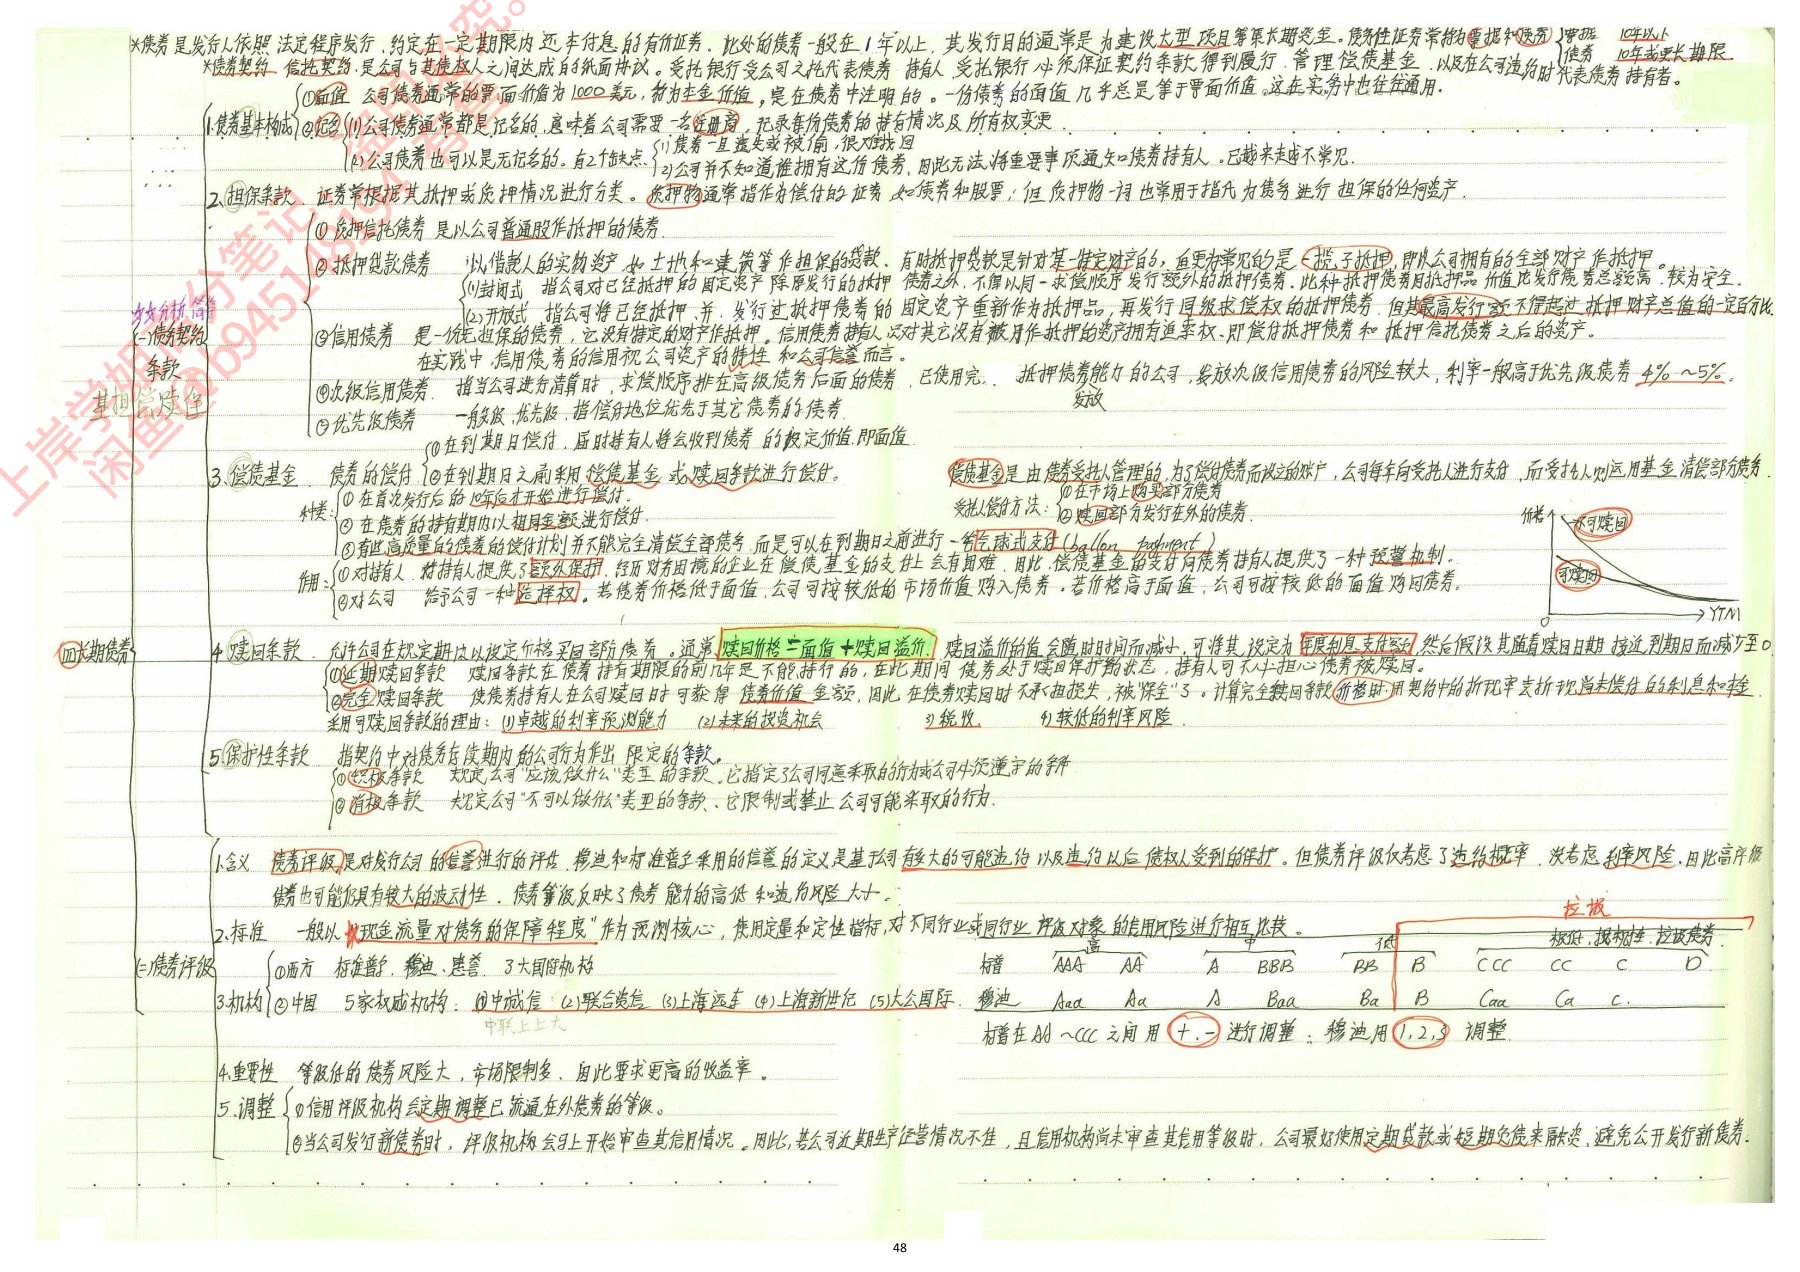 *债券 是发行人依照 法定程序发行、约定在一定期限内 还本付息 的有价证券. 此处的债券一般在1年以上, 其发行目的通常是为建设大型项目筹集长期资金。债务性证券常称为票据和债券 { 票据 10年以下
债券 10年或更长期限
*债券契约 信托契约. 是公司与其债权人之间达成的纸面协议。受托银行受公司之托代表债券 持有人 受托银行必须保证契约条款得到履行. 管理偿债基金 以及在公司违约时代表债券持有者。
1.债券基本构成
①面值 公司债券通常的票面价值为1000美元, 称为本金价值, 是在债券中注明的。一份债券的面值几乎总是等于票面价值, 这在实务中也往往通用.
②记名 (1)公司债券通常都是记名的, 意味着公司需要一名注册商, 记录每份债券的持有情况及所有权变更.
(2)公司债券也可以是无记名的。有2个缺点
(1)债券一旦丢失或被偷, 很难找回
(2)公司并不知道谁拥有这份债券, 因此无法将重要事项通知债券持有人。已越来越不常见.
2.担保条款 证券常根据其抵押或质押情况进行分类。质押物通常指作为偿付的证券 如债券和股票; 但质押物一词也常用于指代为债务进行担保的任何资产.
①质押信托债券 是以公司普通股作抵押的债券
②抵押贷款债券 以借款人的实物资产 如土地和建筑等作担保的贷款、有时抵押贷款是针对某一特定财产的, 但更加常见的是一揽子抵押, 即以公司拥有的全部财产作抵押。
(1)封闭式 指公司对已经抵押的固定资产除原发行的抵押债券之外, 不得以同一求偿顺序发行额外的抵押债券. 此种抵押债券因抵押品价值比发行债券总额高, 较为安全.
(2)开放式 指公司将已经抵押、并发行过抵押债券的固定资产重新作为抵押品, 再发行同级求偿权的抵押债券. 但其最高发行额不得超过抵押财产总值的一定百分比.
③信用债券 是一份无担保的债券, 它没有特定的财产作抵押。信用债券持有人只对其它没有被用作抵押的资产拥有追索权、即偿付抵押债券和抵押信托债券之后的资产。
在实践中 信用债券的信用视公司资产的特性 和公司信誉而言。
④次级信用债券. 指当公司进行清算时, 求偿顺序排在高级债务后面的债券. 已使用完、 抵押债券能力的公司, 发放次级信用债券的风险较大, 利率一般高于优先级债券 4%~5%。
发放
⑤优先级债券 一般级, 优先级. 指偿付地位优先于其它债券的债券.
3.偿债基金 债券的偿付
①在到期日偿付. 届时持有人将会收到债券的设定价值, 即面值
②在到期日之前采用偿债基金或赎回条款进行偿付。
偿债基金是由债券受托人管理的, 为了偿付债券而设立的账户, 公司每年向受托人进行支付, 而受托人则运用基金清偿部分债务.
种类:
① 在首次发行后的10年后才开始进行偿付.
② 在债券的持有期内以相同金额进行偿付.
③有些高质量的债券的偿付计划并不能完全清偿全部债务, 而是可以在到期日之前进行一笔气球式支付 (ballon payment)
受托人偿付方法: ①在市场上购买部分债券
②赎回部分发行在外的债券.
作用:
①对持有人 对持有人提供了额外保护, 经历财务困境的企业在偿债基金的支付上会有困难, 因此, 偿债基金的支付向债券持有人提供了一种预警机制。
②对公司 给予公司一种选择权。若债券价格低于面值, 公司可按较低的市场价值购入债券。若价格高于面值, 公司可按较低的面值购回债券。
价格
不可赎回
可赎回
0
YTM
4.赎回条款. 允许公司在规定期内以设定价格买回全部债券。通常, 赎回价格=面值+赎回溢价. 赎回溢价的值会随时间而减小, 可将其设定为年度利息支付额, 然后假设其随着赎回日期接近到期日而减少至0.
①延期赎回条款 赎回条款在债券持有期限的前几年是不能执行的, 在此期间 债券处于赎回保护的状态, 持有人可不必担心债券被赎回。
②完全赎回条款 使债券持有人在公司赎回时可获得债券价值金额, 因此在债券赎回时不承担损失, 被“保全”了。计算完全赎回条款价格时, 用契约中的折现率去折现尚未偿付的利息和本金.
采用可赎回条款的理由: (1)卓越的利率预测能力 (2)未来的投资机会 (3)税收 (4)较低的利率风险.
5.保护性条款. 指契约中对债务存续期内的公司行为作出限定的条款。
①积极条款 规定公司“应该做什么”类型的条款. 它指定了公司同意采取的行为或公司必须遵守的条件
②消极条款 规定公司“不可以做什么”类型的条款、它限制或禁止公司可能采取的行为.
女女分析、简答
(一)债券契约
条款
(四)长期债券
1.含义 债券评级, 是对发行公司的信誉进行的评估. 穆迪和标准普尔采用的信誉的定义是基于公司有多大的可能违约 以及违约以后债权人受到的保护. 但债券评级仅考虑了违约概率, 没考虑利率风险, 因此高评级
债券也可能仍具有较大的波动性. 债券等级反映了债务能力的高低和违约风险大小。
2.标准 一般以“现金流量对债务的保障程度”作为预测核心, 使用定量和定性指标, 对不同行业或同行业评级对象的信用风险进行相互比较。
垃圾
高 中 低 极低, 投机性, 垃圾债券
标普 AAA AA A BBB BB B CCC CC C D
穆迪 Aaa Aa A Baa Ba B Caa Ca C.
标普在AA~CCC之间用 +、- 进行调整; 穆迪用 1,2,3 调整.
(二)债券评级
3.机构
①西方 标准普尔、穆迪、惠誉 3大国际机构
②中国 5家权威机构: (1)中诚信 (2)联合资信 (3)上海远东 (4)上海新世纪 (5)大公国际.
中联上上大
4.重要性 等级低的债券风险大, 市场限制多, 因此要求更高的收益率。
5.调整
①信用评级机构会定期调整已流通在外债券的等级。
②当公司发行新债券时, 评级机构会马上开始审查其信用情况。因此, 若公司近期生产经营情况不佳, 且信用机构尚未审查其信用等级时, 公司最好使用定期贷款或短期负债来融资, 避免公开发行新债券.
上岸学姐高分笔记,
闲鱼@b945148194
48